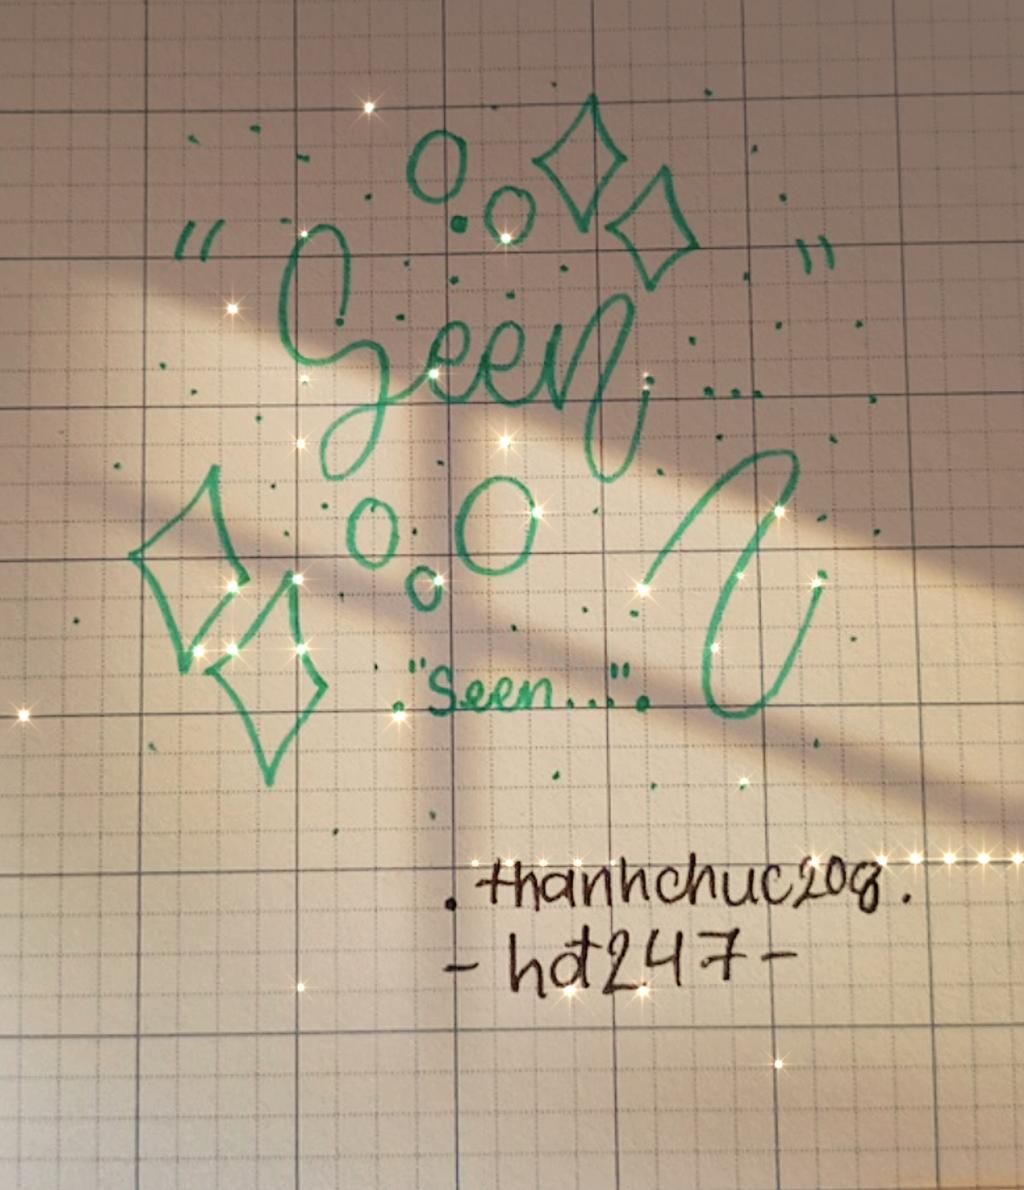 "Seen..."
."Seen...".
. thanhchuc208.
- hdt247-